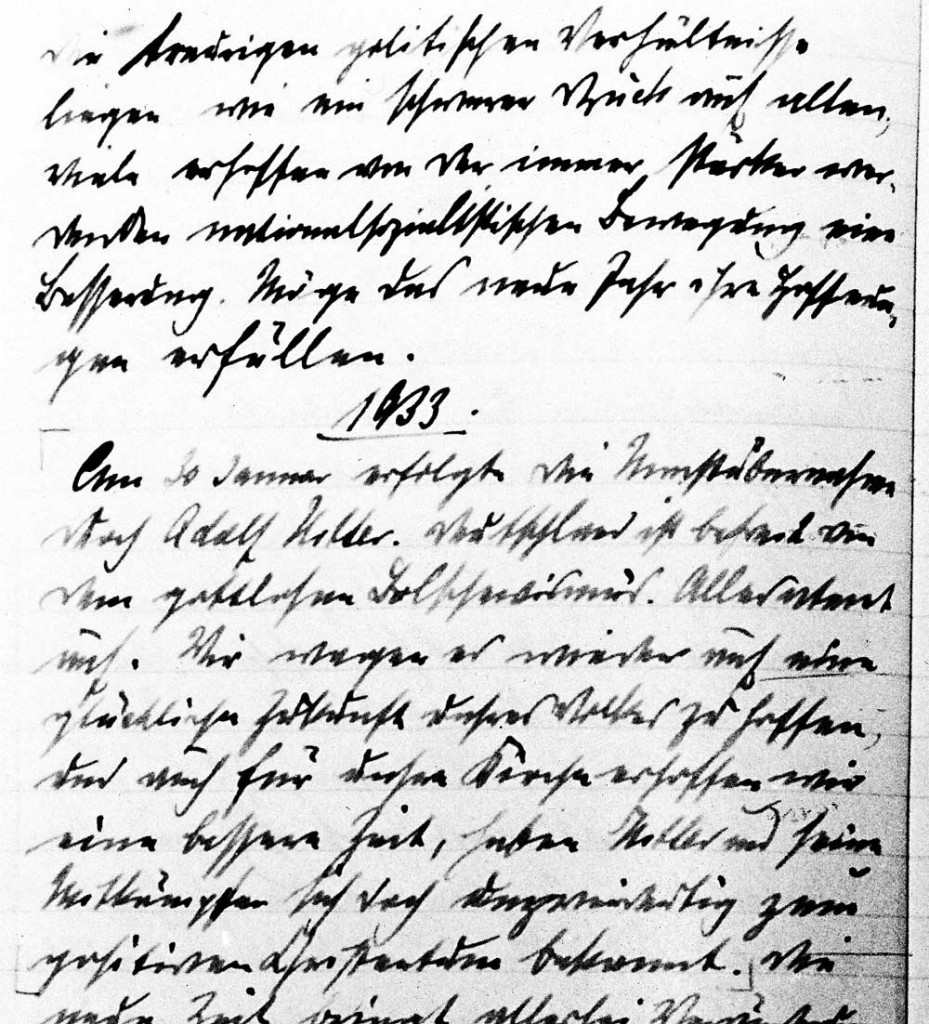 Die traurigen politischen Verhältnisse
liegen wie ein schwerer Druck auf allen,
Viele erhoffen von der immer stärker wer-
denden nationalsozialistischen Bewegung eine
Besserung. Möge das neue Jahr ihre Hoffnun-
gen erfüllen.
1933.
Am 30 Januar erfolgte die Machtübernahme
durch Adolf Hitler. Deutschland ist befreit von
dem gottlosen Bolschewismus. Alles atmet
auf. Wir wagen es wieder auf eine
glückliche Zukunft unsres Volkes zu hoffen,
und auch für unsre Kirche erhoffen wir
eine bessere Zeit, haben Hitler und seine
Mitkämpfer sich doch unzweideutig zum
positiven Christentum bekannt. Die
neue Zeit bringt allerlei